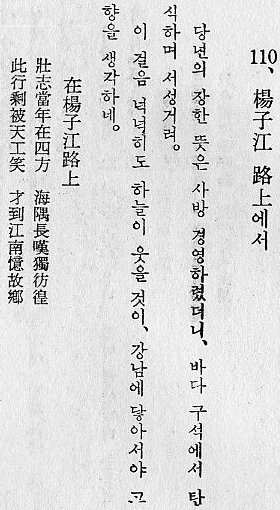 110、楊子江 路上에서
당년의 장한 뜻은 사방 경영하렸더니、바다 구석에서 탄
식하며 서성거려。
이 걸음 넉넉히도 하늘이 웃을 것이、강남에 닿아서야 고
향을 생각하네。
在楊子江路上
壯志當年在四方 海隅長嘆獨彷徨
此行剩被天工笑 才到江南憶故鄕